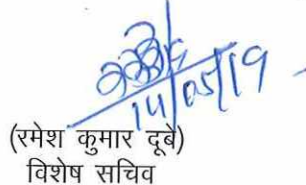 14/05/19
(रमेश कुमार दूबे)
विशेष सचिव